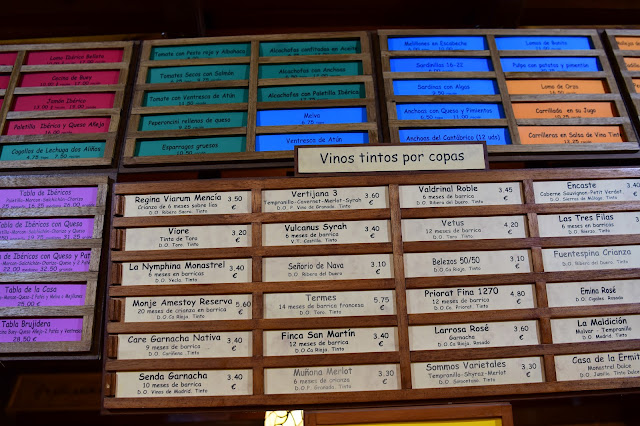 Lomo Ibérico Bellota
Cecina de Buey
Jamón Ibérico
Paletilla Ibérica y Queso Añejo
Cogollos de Lechuga dos Aliños
Tomate con Pesto rojo y Albahaca
Tomates Secos con Salmón
Tomate con Ventresca de Atún
Peperoncini rellenos de queso
Esparragos gruesos
Alcachofas confitadas en Aceite
Alcachofas con Anchoas
Alcachofas con Paletilla Ibérica
Melva
Ventresca de Atún
Mejillones en Escabeche
Sardinillas 16-22
Sardinas con Algas
Anchoas con Queso y Pimientos
Anchoas del Cantábrico (12 uds)
Lomos de Bonito
Pulpo con patatas y pimentón
Lomo de Orza
Carrillada en su Jugo
Carrilleras en Salsa de Vino Tinto
Vinos tintos por copas
Tabla de Ibéricos
Tabla de Ibéricos con Queso
Tabla de Ibéricos con Queso y Pat
Tabla de la Casa
25.00 €
Tabla Brujidera
28.50 €
Regina Viarum Mencía 3.50 €
Crianza de 6 meses sobre lías
D.O. Ribera Sacra. Tinto
Viore 3.20 €
Tinta de Toro
D.O. Toro. Tinto
La Nymphina Monastrel 3.40 €
6 meses de barrica
D.O. Yecla. Tinto
Monje Amestoy Reserva 5.60 €
20 meses de crianza en barrica
D.O.Ca Rioja. Tinto
Care Garnacha Nativa 3.40 €
9 meses de barrica
D.O. Cariñena. Tinto
Senda Garnacha 3.40 €
10 meses de barrica
D.O. Vinos de Madrid. Tinto
Vertijana 3 3.60 €
Tempranillo-Cavernet-Merlot-Syrah
D.O. P. Vino de Granada. Tinto
Vulcanus Syrah 3.40 €
6 meses de barrica
V.T. Castilla. Tinto
Señorio de Nava 3.10 €
D.O. Ribera del Duero
Termes 5.75 €
14 meses de barrica francesa
D.O. Toro. Tinto
Finca San Martín 3.40 €
12 meses de barrica
D.O.Ca Rioja. Tinto
Muñana Merlot 3.30 €
6 meses de crianza
D.O.P. Granada. Tinto
Valdrinal Roble 3.45 €
6 meses de barrica
D.O. Ribera del Duero. Tinto
Vetus 3.40 €
12 meses de barrica
D.O. Toro. Tinto
Belezos 50/50 3.10 €
D.O.Ca Rioja. Tinto
Priorat Fina 1270 4.80 €
12 meses de barrica
D.O.Ca Priorat. Tinto
Larrosa Rosé 3.60 €
Garnacha
D.O.Ca Rioja. Rosado
Sommos Varietales 3.30 €
Tempranillo-Shyraz-Merlot
D.O. Somontano. Tinto
Encaste
Cabernet Sauvignon-Petit Verdot
D.O. Sierras de Málaga. Tinto
Las Tres Filas
6 meses de barrica
Fuentespina Crianza
D.O. Ribera del Duero. Tinto
Emina Rosé
D.O. Cigales. Rosado
La Maldición
Malvar - Tempranillo
D.O. Madrid. Tinto
Casa de la Ermit
Monastrel Dolce
D.O. Jumilla. Tinto